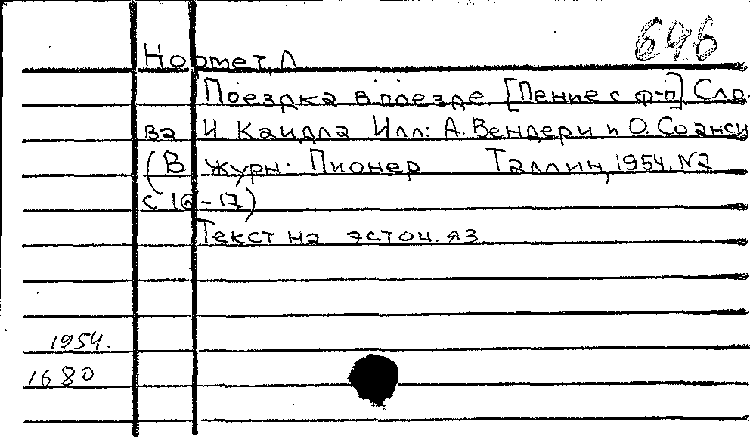 646
Нормет, Л
Поездка в поезде [Пение с ф-п] Сло.
ва И. Каидла Илл: А. Вендери и О. Соанси
(В журн. Пионер Таллин, 1954. N2
с 16-17)
Текст на эстон. яз
1954.
1680